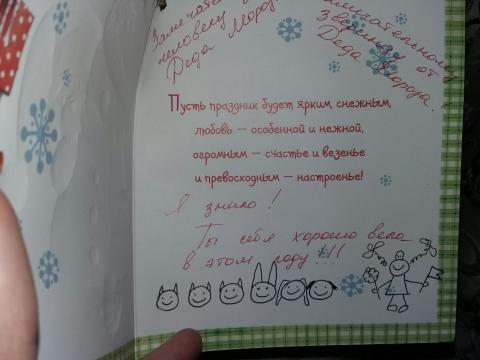 Замечате
человеку
Деда Мороз
замечательному
зверинцу от
Деда Мороза.
Пусть праздник будет ярким, снежным,
любовь — особенной и нежной,
огромным — счастье и везенье
и превосходным — настроенье!
Я знаю!
Ты себя хорошо вела
в этом году!!!